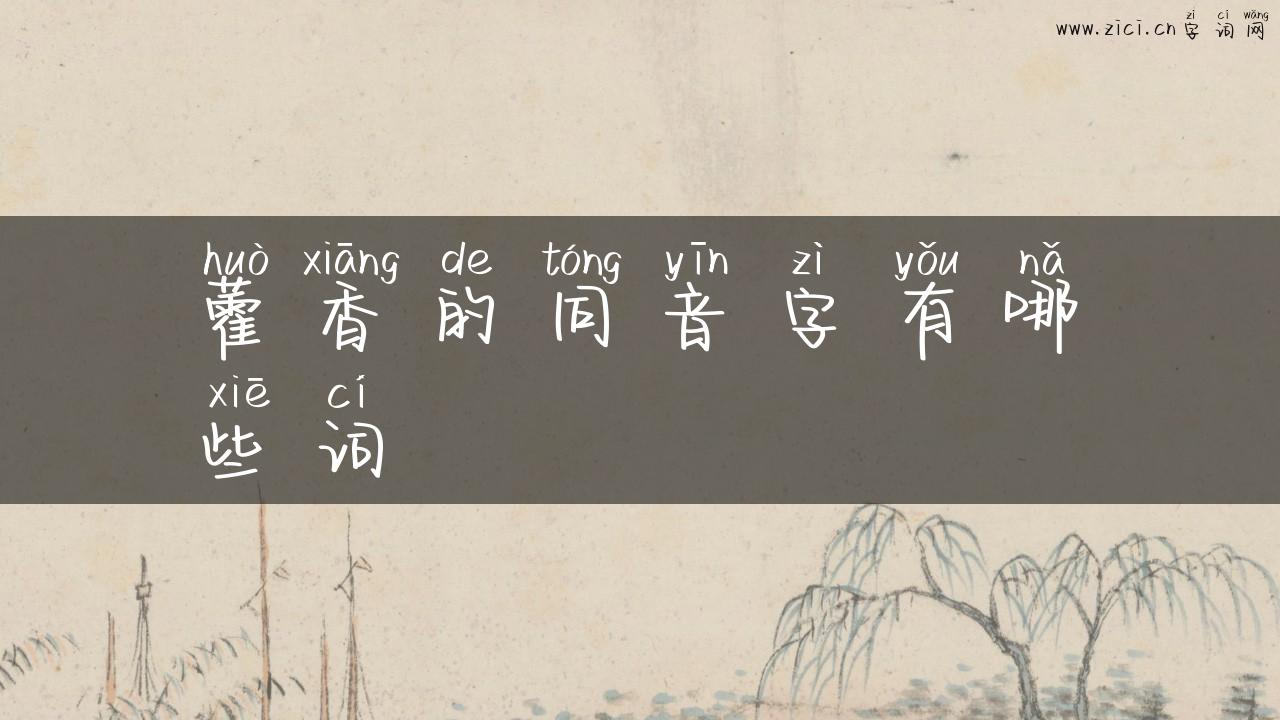 zì cí wǎng
www.zici.cn 字词网
huò xiāng de tóng yīn zì yǒu nǎ
藿香的同音字有哪
xiē cí
些词